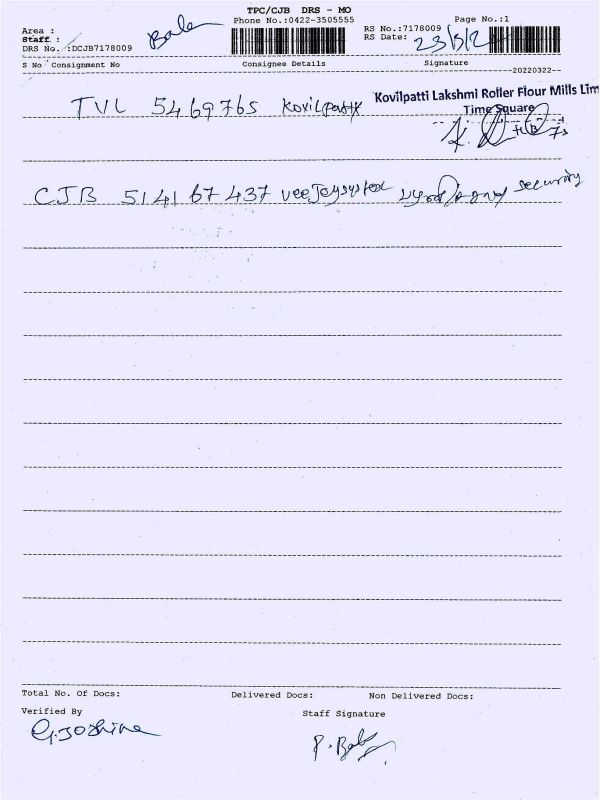 TPC/CJB DRS - MO
Phone No.:0422-3505555
Page No.:1
Area :
Staff :
Bala
DRS No. :DCJB7178009
RS No.:7178009
RS Date:
23/3/2
S No Consignment No Consignee Details Signature
--20220322--
TVL 5469765 Kovilpatti
Kovilpatti Lakshmi Roller Flour Mills Lim
Time Square
CJB 514167437 veeJaysystex security
Total No. Of Docs: Delivered Docs: Non Delivered Docs:
Verified By
Staff Signature
G.Joshina
P. Bala